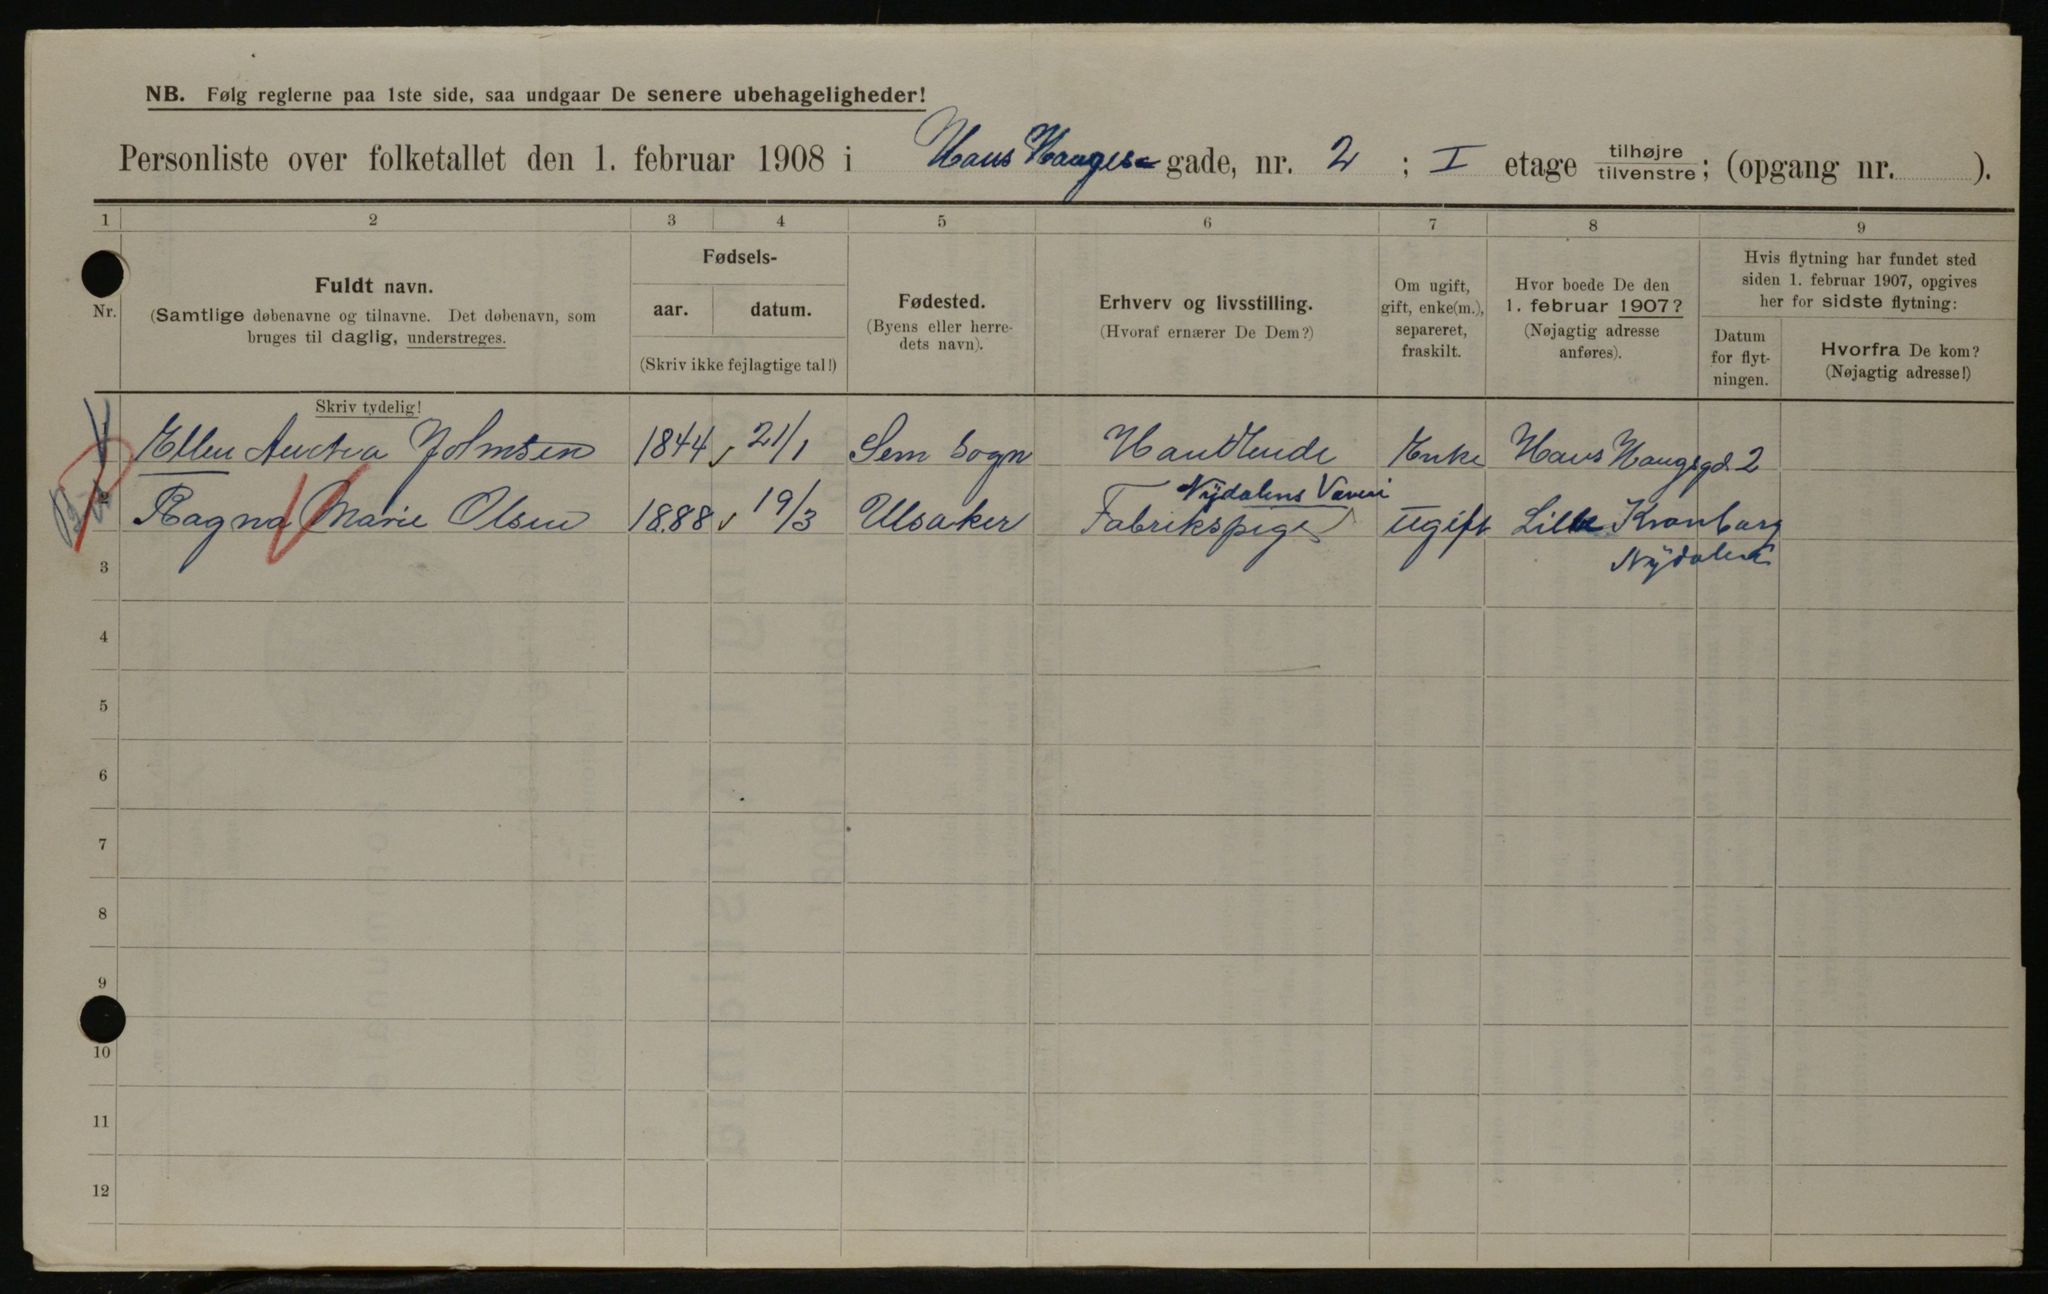 NB. Følg reglerne paa 1ste side, saa undgaar De senere ubehageligheder!
Personliste over folketallet den 1. februar 1908 i Hans Hauges gade, nr. 2 ; I etage tilhøjre/tilvenstre; (opgang nr. ).
1 2 3 4 5 6 7 8 9
Nr.
Fuldt navn.
(Samtlige døbenavne og tilnavne. Det døbenavn, som
bruges til daglig, understreges.
Skriv tydelig!
Fødsels-
aar. datum.
(Skriv ikke fejlagtige tal!)
Fødested.
(Byens eller herre-
dets navn).
Erhverv og livsstilling.
(Hvoraf ernærer De Dem?)
Om ugift,
gift, enke(m.),
separeret,
fraskilt.
Hvor boede De den
1. februar 1907?
(Nøjagtig adresse
anføres).
Hvis flytning har fundet sted
siden 1. februar 1907, opgives
her for sidste flytning:
Datum
for flyt-
ningen.
Hvorfra De kom?
(Nøjagtig adresse!)
Ellen Johnsen 1844 21/1 Sem Sogn Handlende Enke Hans Haugsgd. 2
Nydalens Væveri
2 Ragna Marie Olsen 1888 19/3 Ulsaker Fabrikspige ugift Lille Kronborg
3 Nydalen
4
5
6
7
8
9
10
11
12